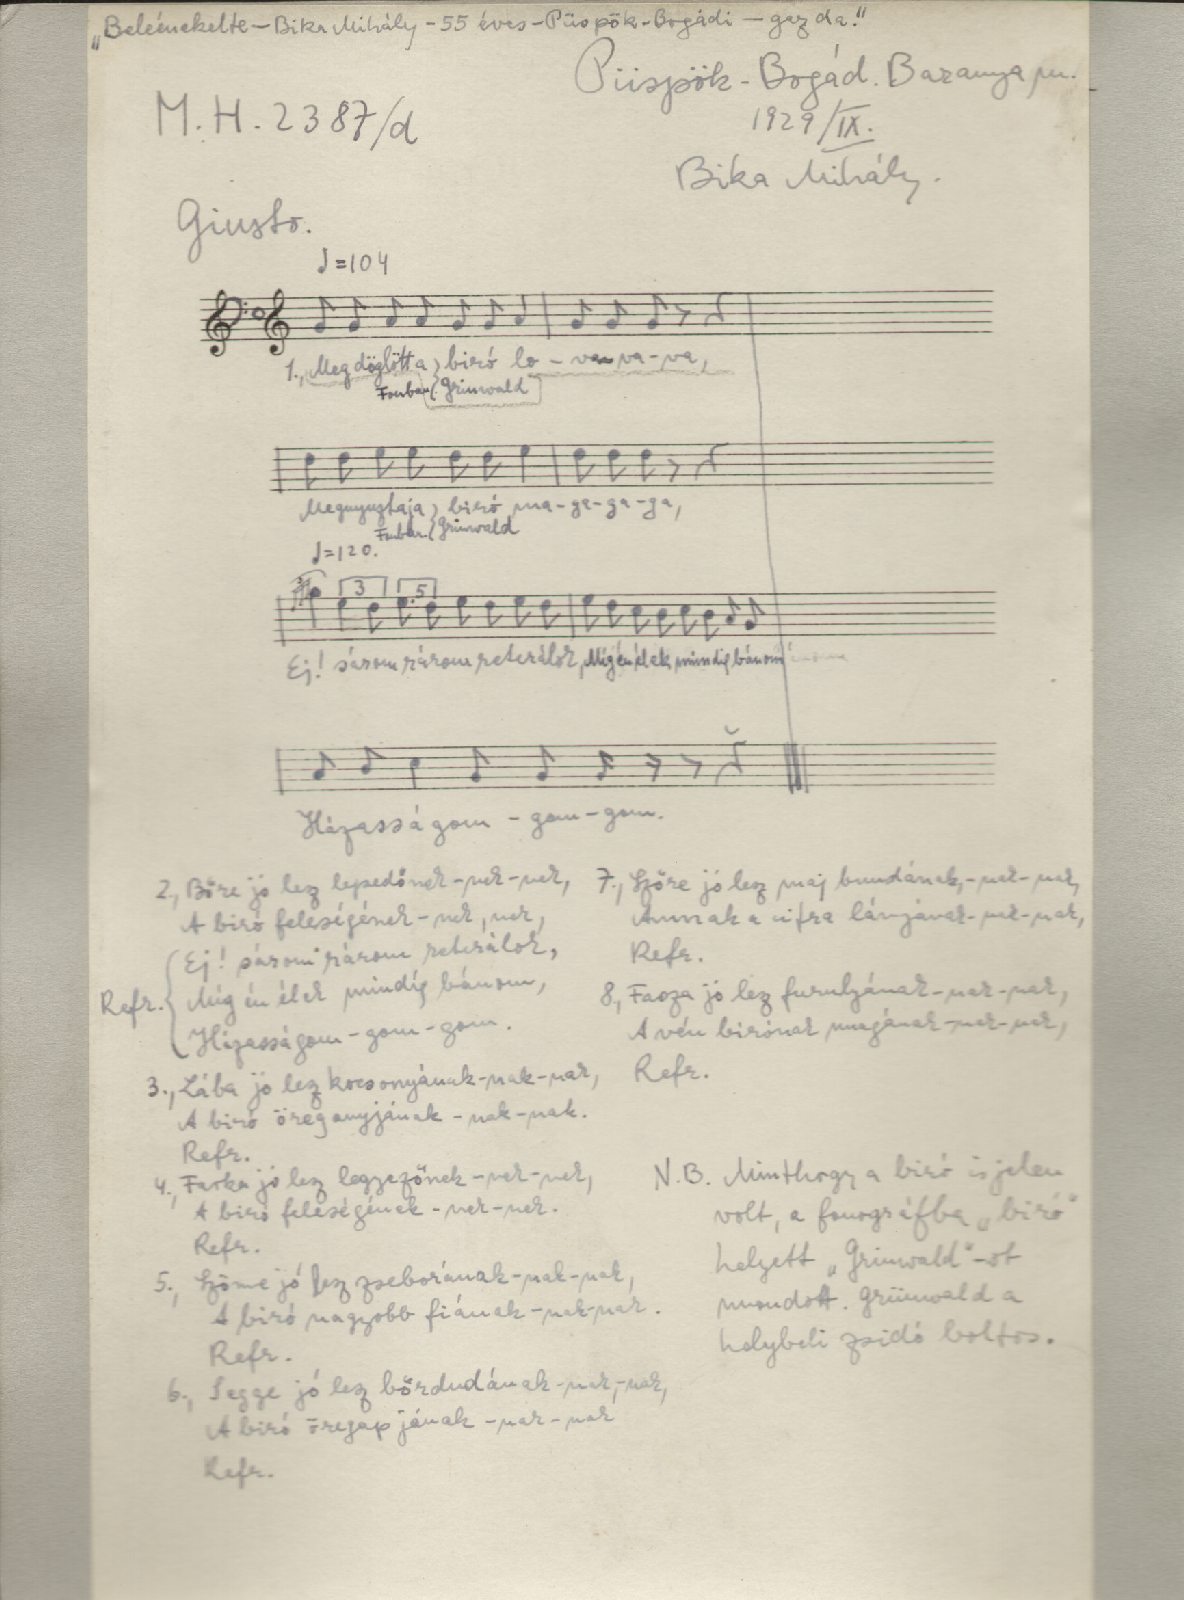 „Beleénekelte – Bika Mihály – 55 éves – Püspök-Bogádi – gazda."
Püspök-Bogád. Baranya m.
M.H. 2387/d
1929/IX.
Bika Mihály.
Giusto.
♩=104
1., Megdöglött a biró lo-va-va-va,
Fonban Grünwald
Megnyuztaja biró ma-ga-ga-ga,
Fonban Grünwald
♩=120.
3 5
Ej! sárom rárom reterálok, Mig én élek mindig bánom
Házasságom-gom-gom.
2., Bőre jó lesz lepedőnek-nek-nek,
A biró feleségének-nek, nek,
Refr. Ej! sárom rárom reterálok,
Mig én élek mindíg bánom,
Házasságom-gom-gom.
3., Lába jó lesz kocsonyának-nak-nak,
A biró öreganyjának-nak-nak.
Refr.
4., Farka jó lesz legyezőnek-nek-nek,
A biró feleségének-nek-nek.
Refr.
5., Szöme jó lesz zseborának-nak-nak,
A biró nagyobb fiának-nak-nak.
Refr.
6., Segge jó lesz bőrdudának-nak,-nak,
A biró öregapjának-nak-nak
Refr.
7., Szőre jó lesz maj bundának,-nak-nak,
Annak a cifra lányának-nak-nak,
Refr.
8., Fasza jó lesz furulyának-nak-nak,
A vén birónak magának-nak-nak,
Refr.
N.B. Minthogy a biró is jelen
volt, a fonográfba „biró"
helyett „Grünwald"-ot
mondott. Grünwald a
helybeli zsidó boltos.